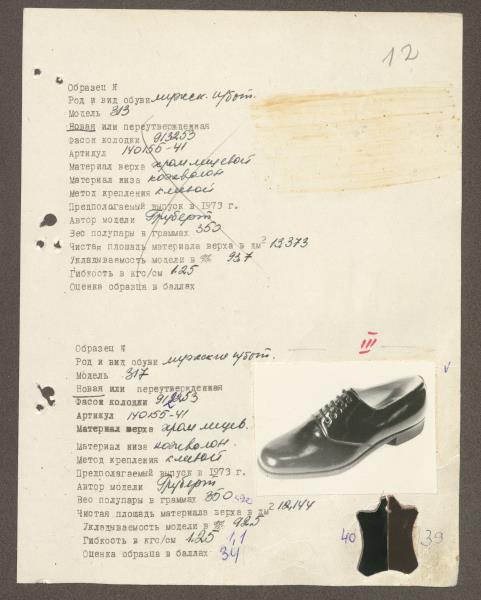 12
Образец №
Род и вид обуви мужск. п/бот.
Модель 313
Новая или переутвержденная
Фасон колодки 913253
Артикул 140155-41
Материал верха хром лицевой
Материал низа кожволон
Метод крепления клеевой
Предполагаемый выпуск в 1973 г.
Автор модели Груберт
Вес полупары в граммах 350
Чистая площадь материала верха в дм2 13,373
Укладываемость модели в % 93,7
Гибкость в кгс/см 1.25
Оценка образца в баллах
III
Образец №
Род и вид обуви мужские п/бот.
Модель 317
Новая или переутвержденная
Фасон колодки 912253
Артикул 140155-41
Материал верха хром лицев.
Материал низа кожволон.
Метод крепления клеевой
Предполагаемый выпуск в 1973 г.
Автор модели Груберт
Вес полупары в граммах 350
Чистая площадь материала верха в дм2 12,144
Укладываемость модели в % 92.5
Гибкость в кгс/см 1.25 1,1
Оценка образца в баллах 34
40 39